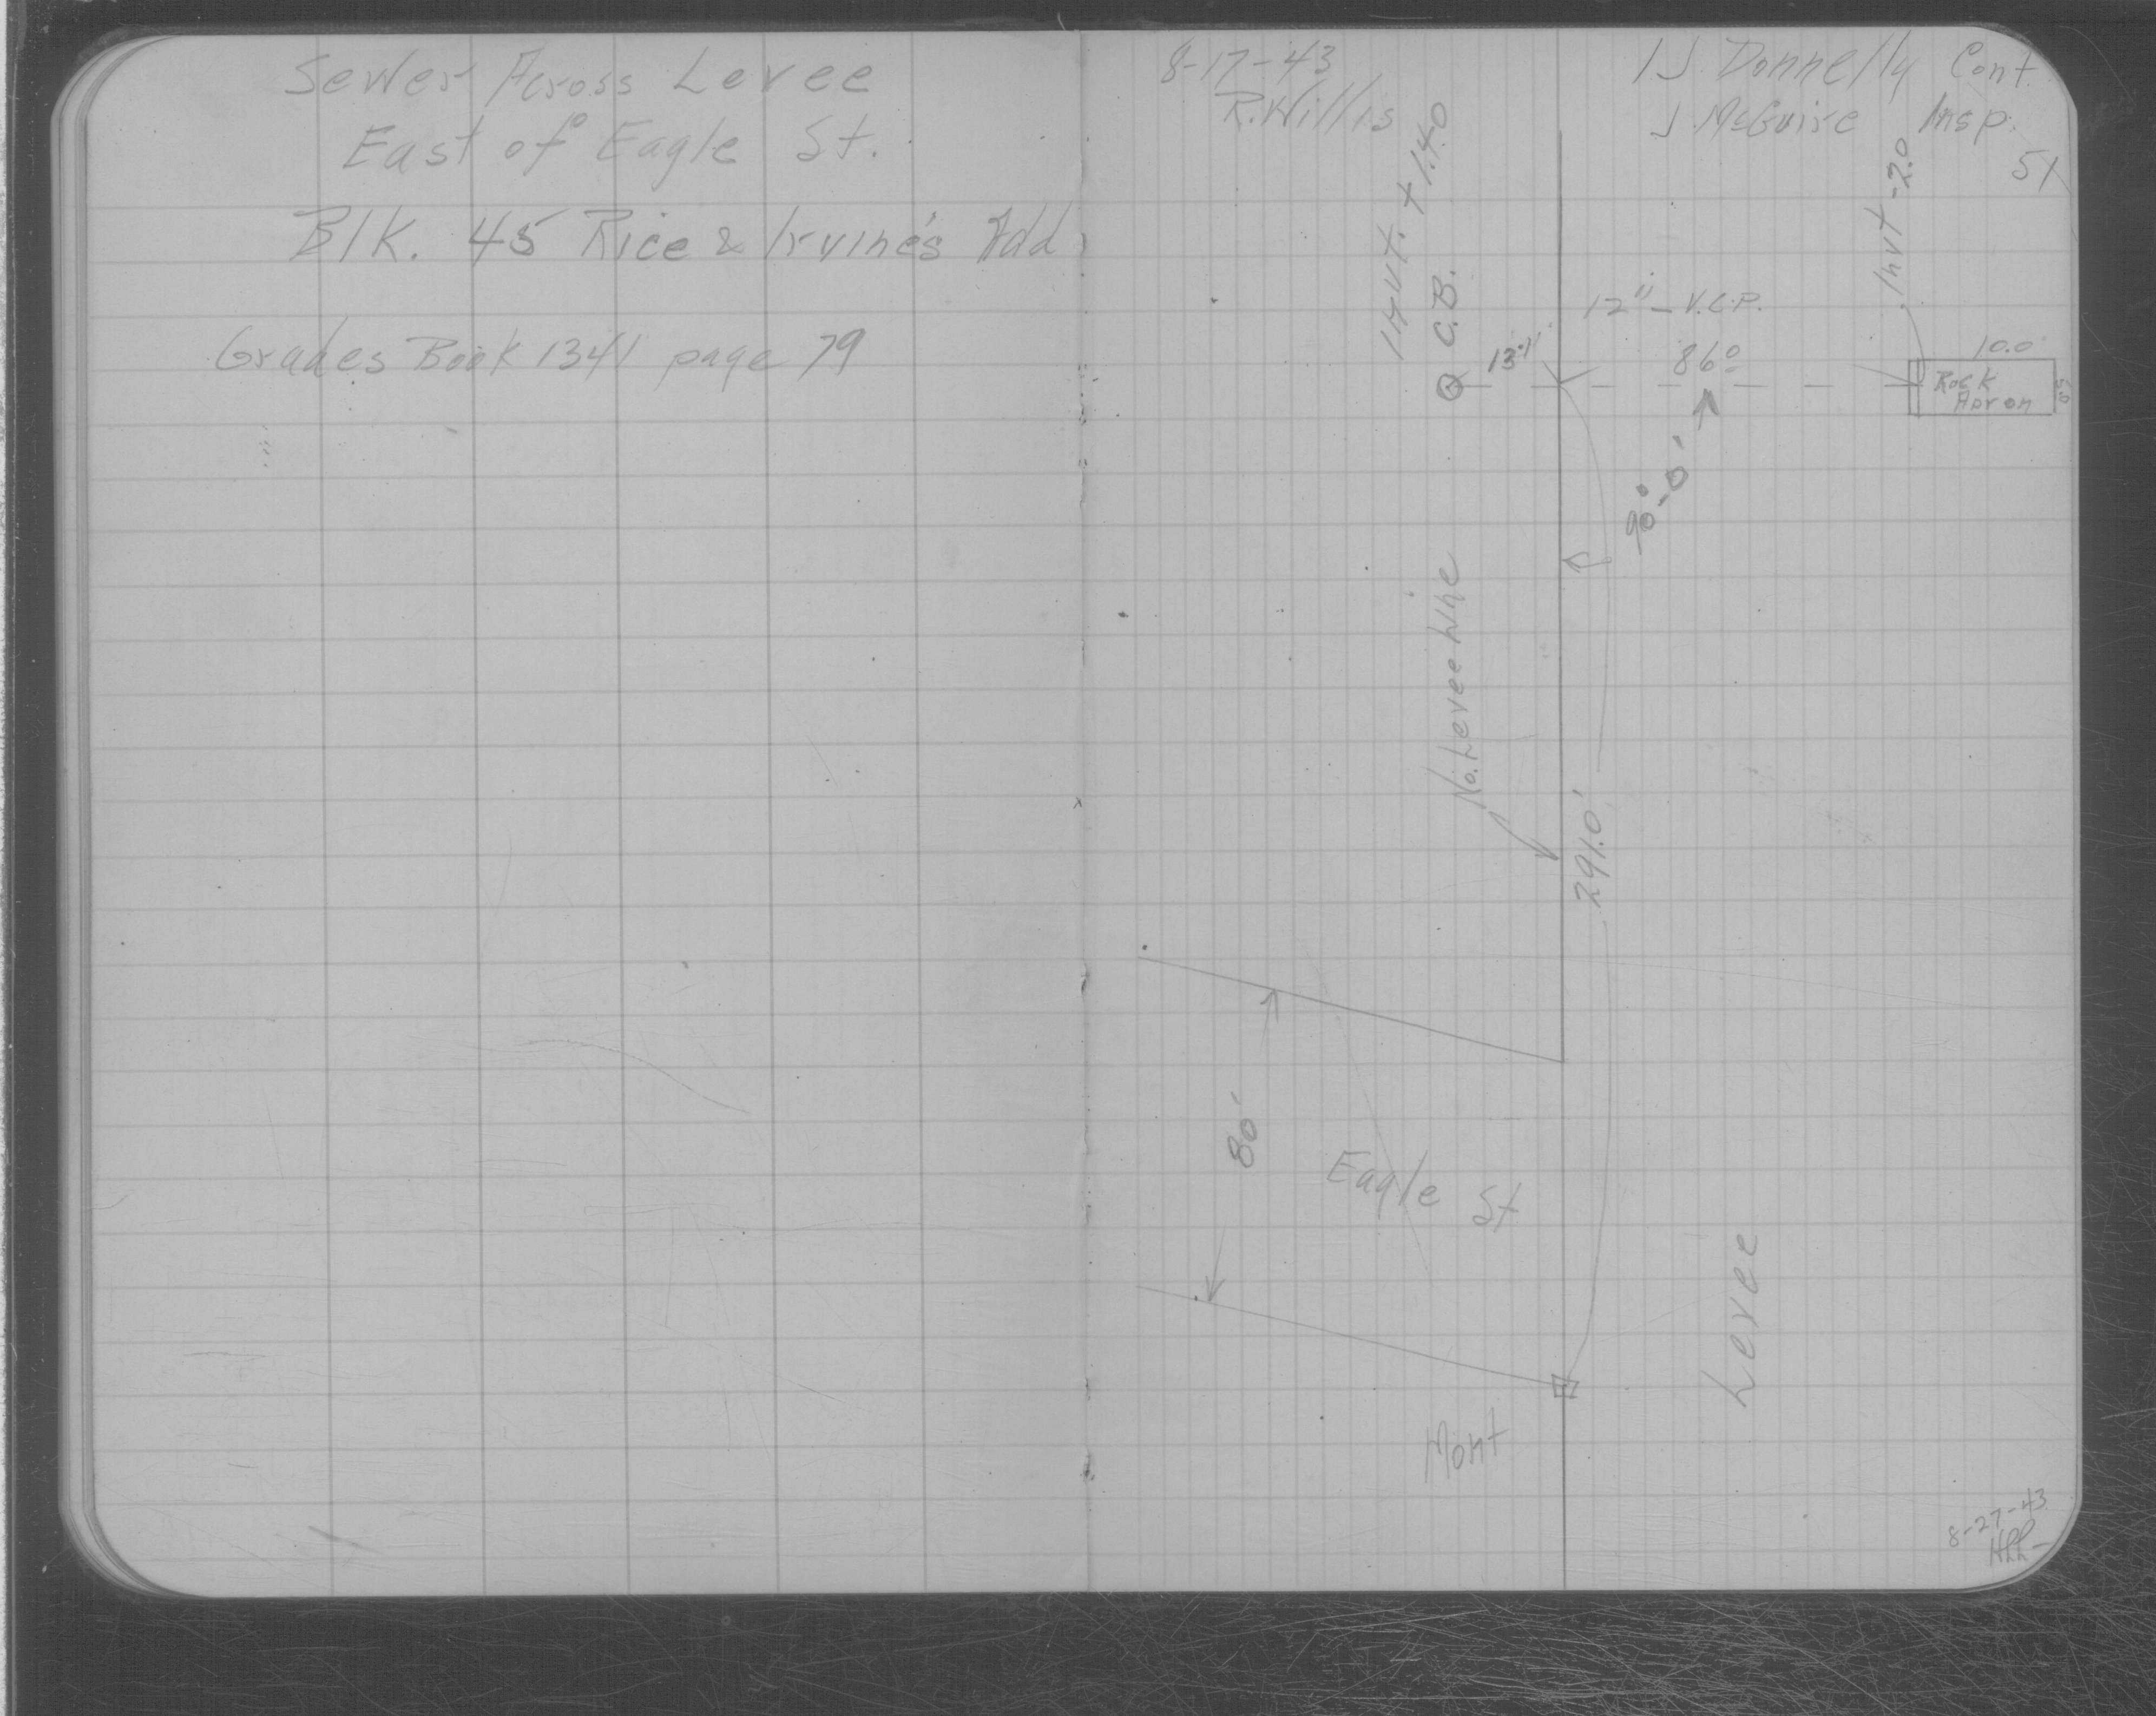 Sewer Across Levee
East of Eagle St.
Blk. 45 Rice & Irvine's Add.
Grades Book 1341 page 79
8-17-43
R. Willis
J Donnelly Cont.
J McGuire Insp.
51
Invt. + 14.0
C.B.
Invt -2.0
12" - V.C.P.
13.1'
86.0
10.0
Rock
Apron
90°-0'
No. Levee Line
291.0'
80'
Eagle St
Levee
Mont
8-27-43